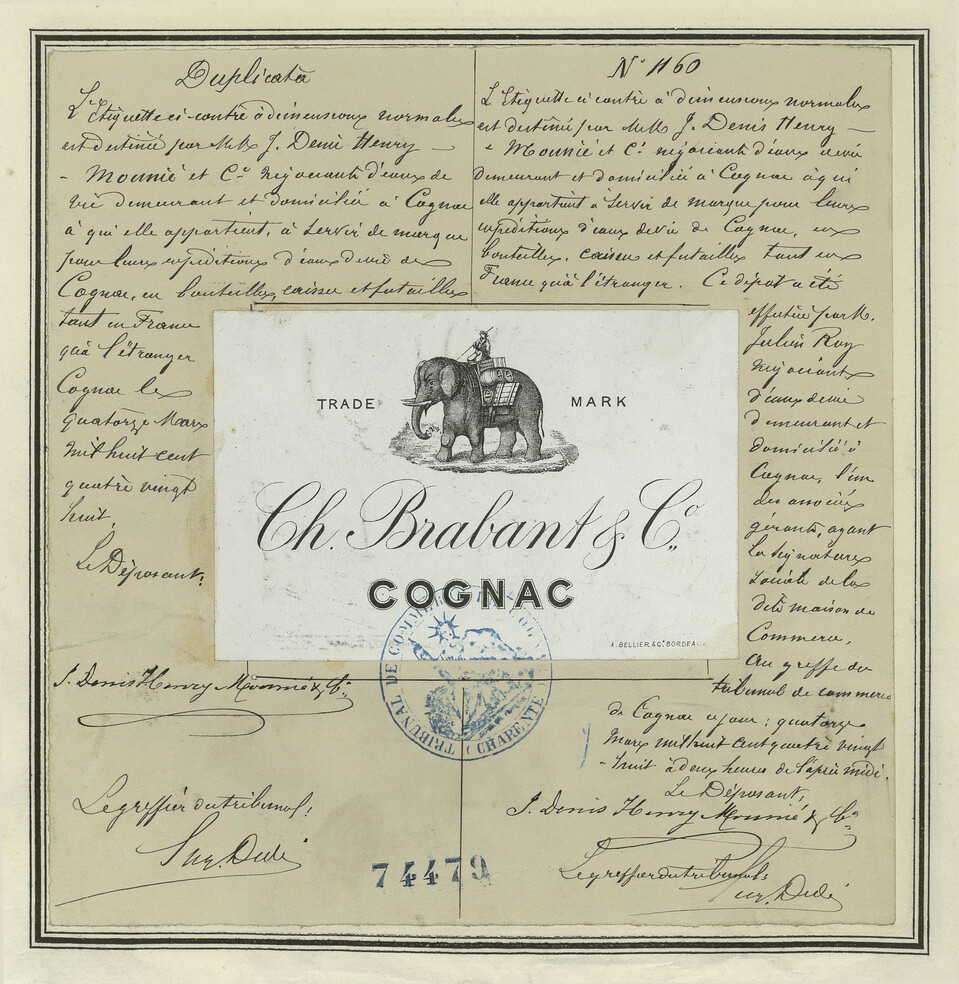 Duplicata
L'Etiquette ci-contre à dimensions normales
est destinée par MM J. Denis Henry
- Mounié et Cie négociants d'eaux de
vie demeurant et domiciliés à Cognac
à qui elle appartient, à servir de marque
pour leurs expéditions d'eaux de vie de
Cognac, en bouteilles, caisses et futailles
tant en France
qu'à l'étranger
Cognac le
quatorze Mars
mil huit cent
quatre vingt
huit
Le Déposant:
J. Denis Henry Mounié & Co.
Le greffier du tribunal:
No 1160
L'Etiquette ci contre à dimensions normales
est destinée par MM J. Denis Henry
- Mounié et Cie négociants d'eaux de vie
demeurant et domiciliés à Cognac à qui
elle appartient à servir de marque pour leurs
expéditions d'eaux de vie de Cognac, en
bouteilles, caisses et futailles tant en
France qu'à l'étranger. Ce dépôt a été
effectué par M.
Julien Roy
négociant
d'eaux de vie
demeurant et
domicilié à
Cognac, l'un
des associés
gérants, ayant
la signature
sociale de la
dite maison de
Commerce,
au greffe du
tribunal de commerce
de Cognac ce jour: quatorze
Mars mil huit cent quatre vingt
- huit à deux heures de l'après midi.
Le Déposant:
J. Denis Henry Mounié & Co.
Le greffier du tribunal:
TRADE MARK
Ch. Brabant & Co.,
COGNAC
A. BELLIER & Cie BORDEAUX
TRIBUNAL DE COMMERCE
(CHARENTE)
74479